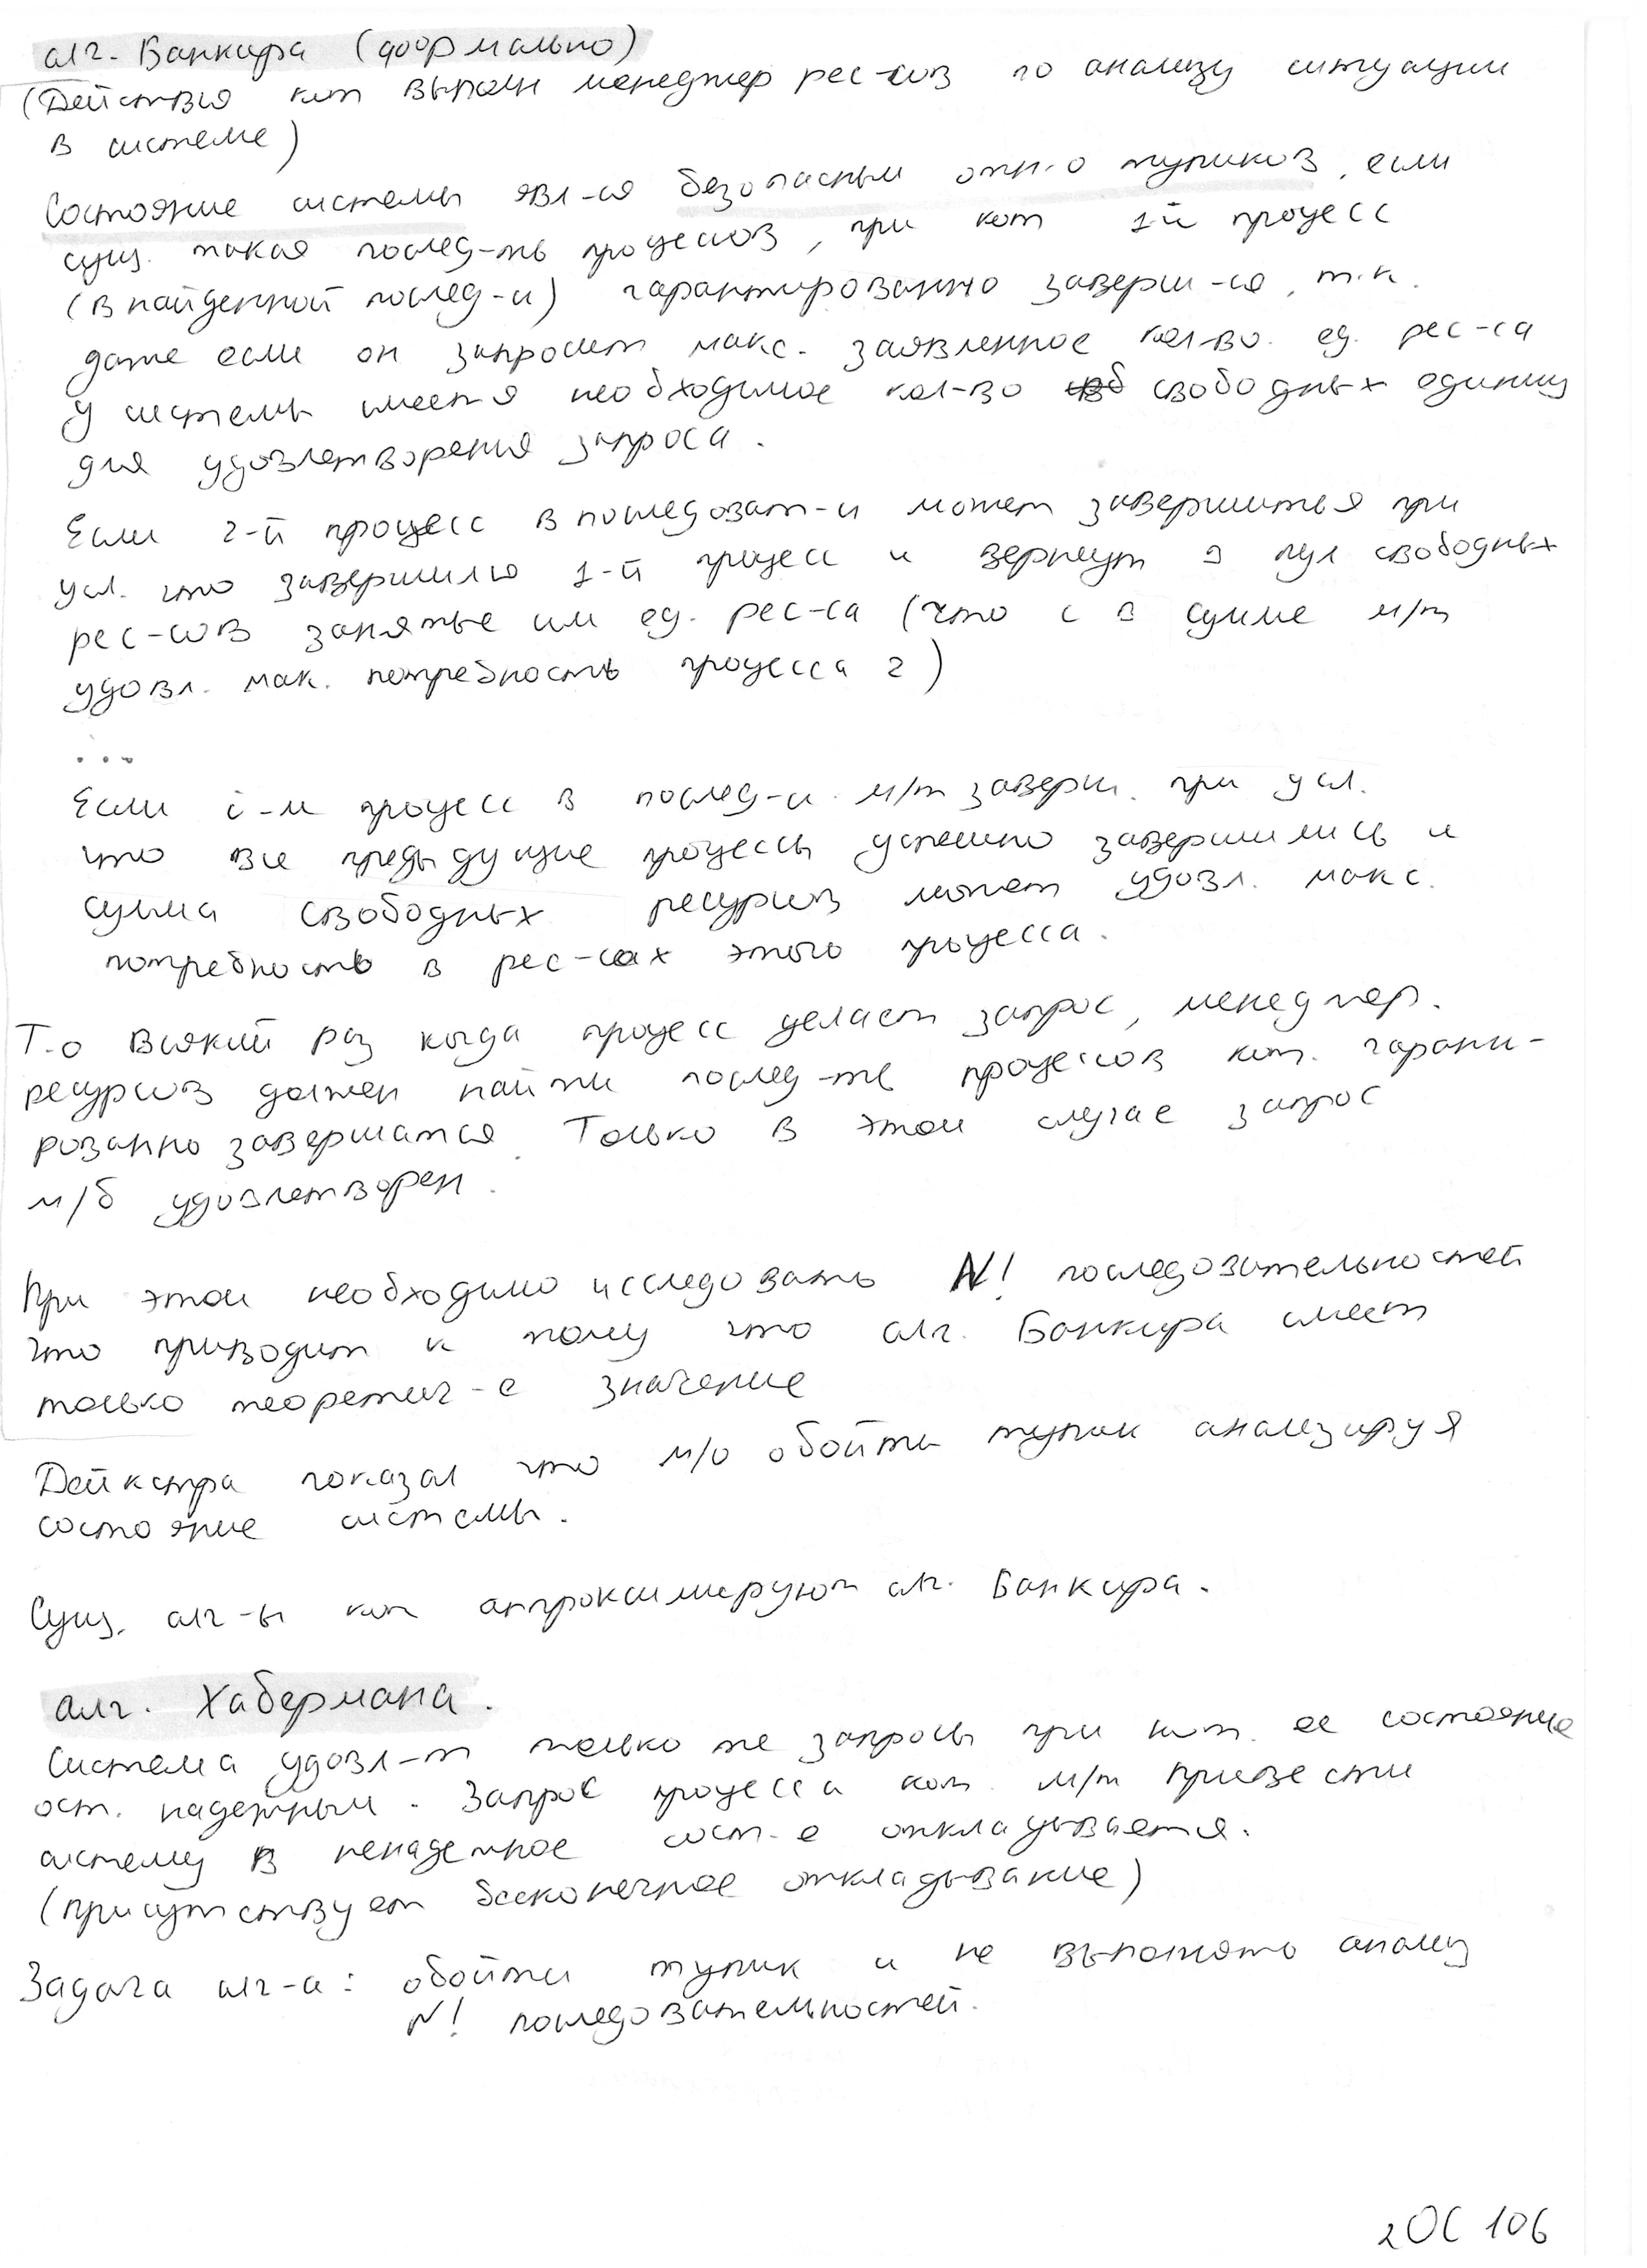 алг. Банкира (формально)
(Действия кот выполн менеджер рес-сов по анализу ситуации
в системе)
Состояние системы явл-ся безопасным отн-о тупиков, если
сущ. такая послед-ть процессов, при кот 1й процесс
(в найденной послед-и) гарантированно заверш-ся, т.к.
даже если он запросит макс. заявленное кол-во. ед. рес-са
у системы имеется необходимое кол-во свободных единиц
для удовлетворения запроса.
Если 2-й процесс в последоват-и может завершиться при
усл. что завершился 1-й процесс и вернут в пул свободных
рес-сов занятые им ед. рес-са (что с в сумме м/т
удовл. мак. потребность процесса 2)
...
Если i-м процесс в послед-и м/т заверш. при усл.
что все предыдущие процессы успешно завершились и
сумма свободных ресурсов может удовл. макс.
потребность в рес-сах этого процесса.
Т.о всякий раз когда процесс делает запрос, менеджер.
ресурсов должен найти послед-ть процессов кот. гаранти-
рованно завершатся. Только в этом случае запрос
м/б удовлетворен.
При этом необходимо исследовать N! последовательностей
что приводит к тому что алг. Банкира имеет
только теоретич-е значение
Дейкстра показал что м/о обойти тупик анализируя
состояние системы.
Сущ. алг-ы кот аппроксимируют алг. Банкира.
алг. Хабермана.
Система удовл-т только те запросы при кот. ее состояние
ост. надежным. Запрос процесса кот. м/т привести
систему в ненадежное сост-е откладывается.
(присутствует бесконечное откладывание)
Задача алг-а: обойти тупик и не выполнять анализ
N! последовательностей.
2ОС 106